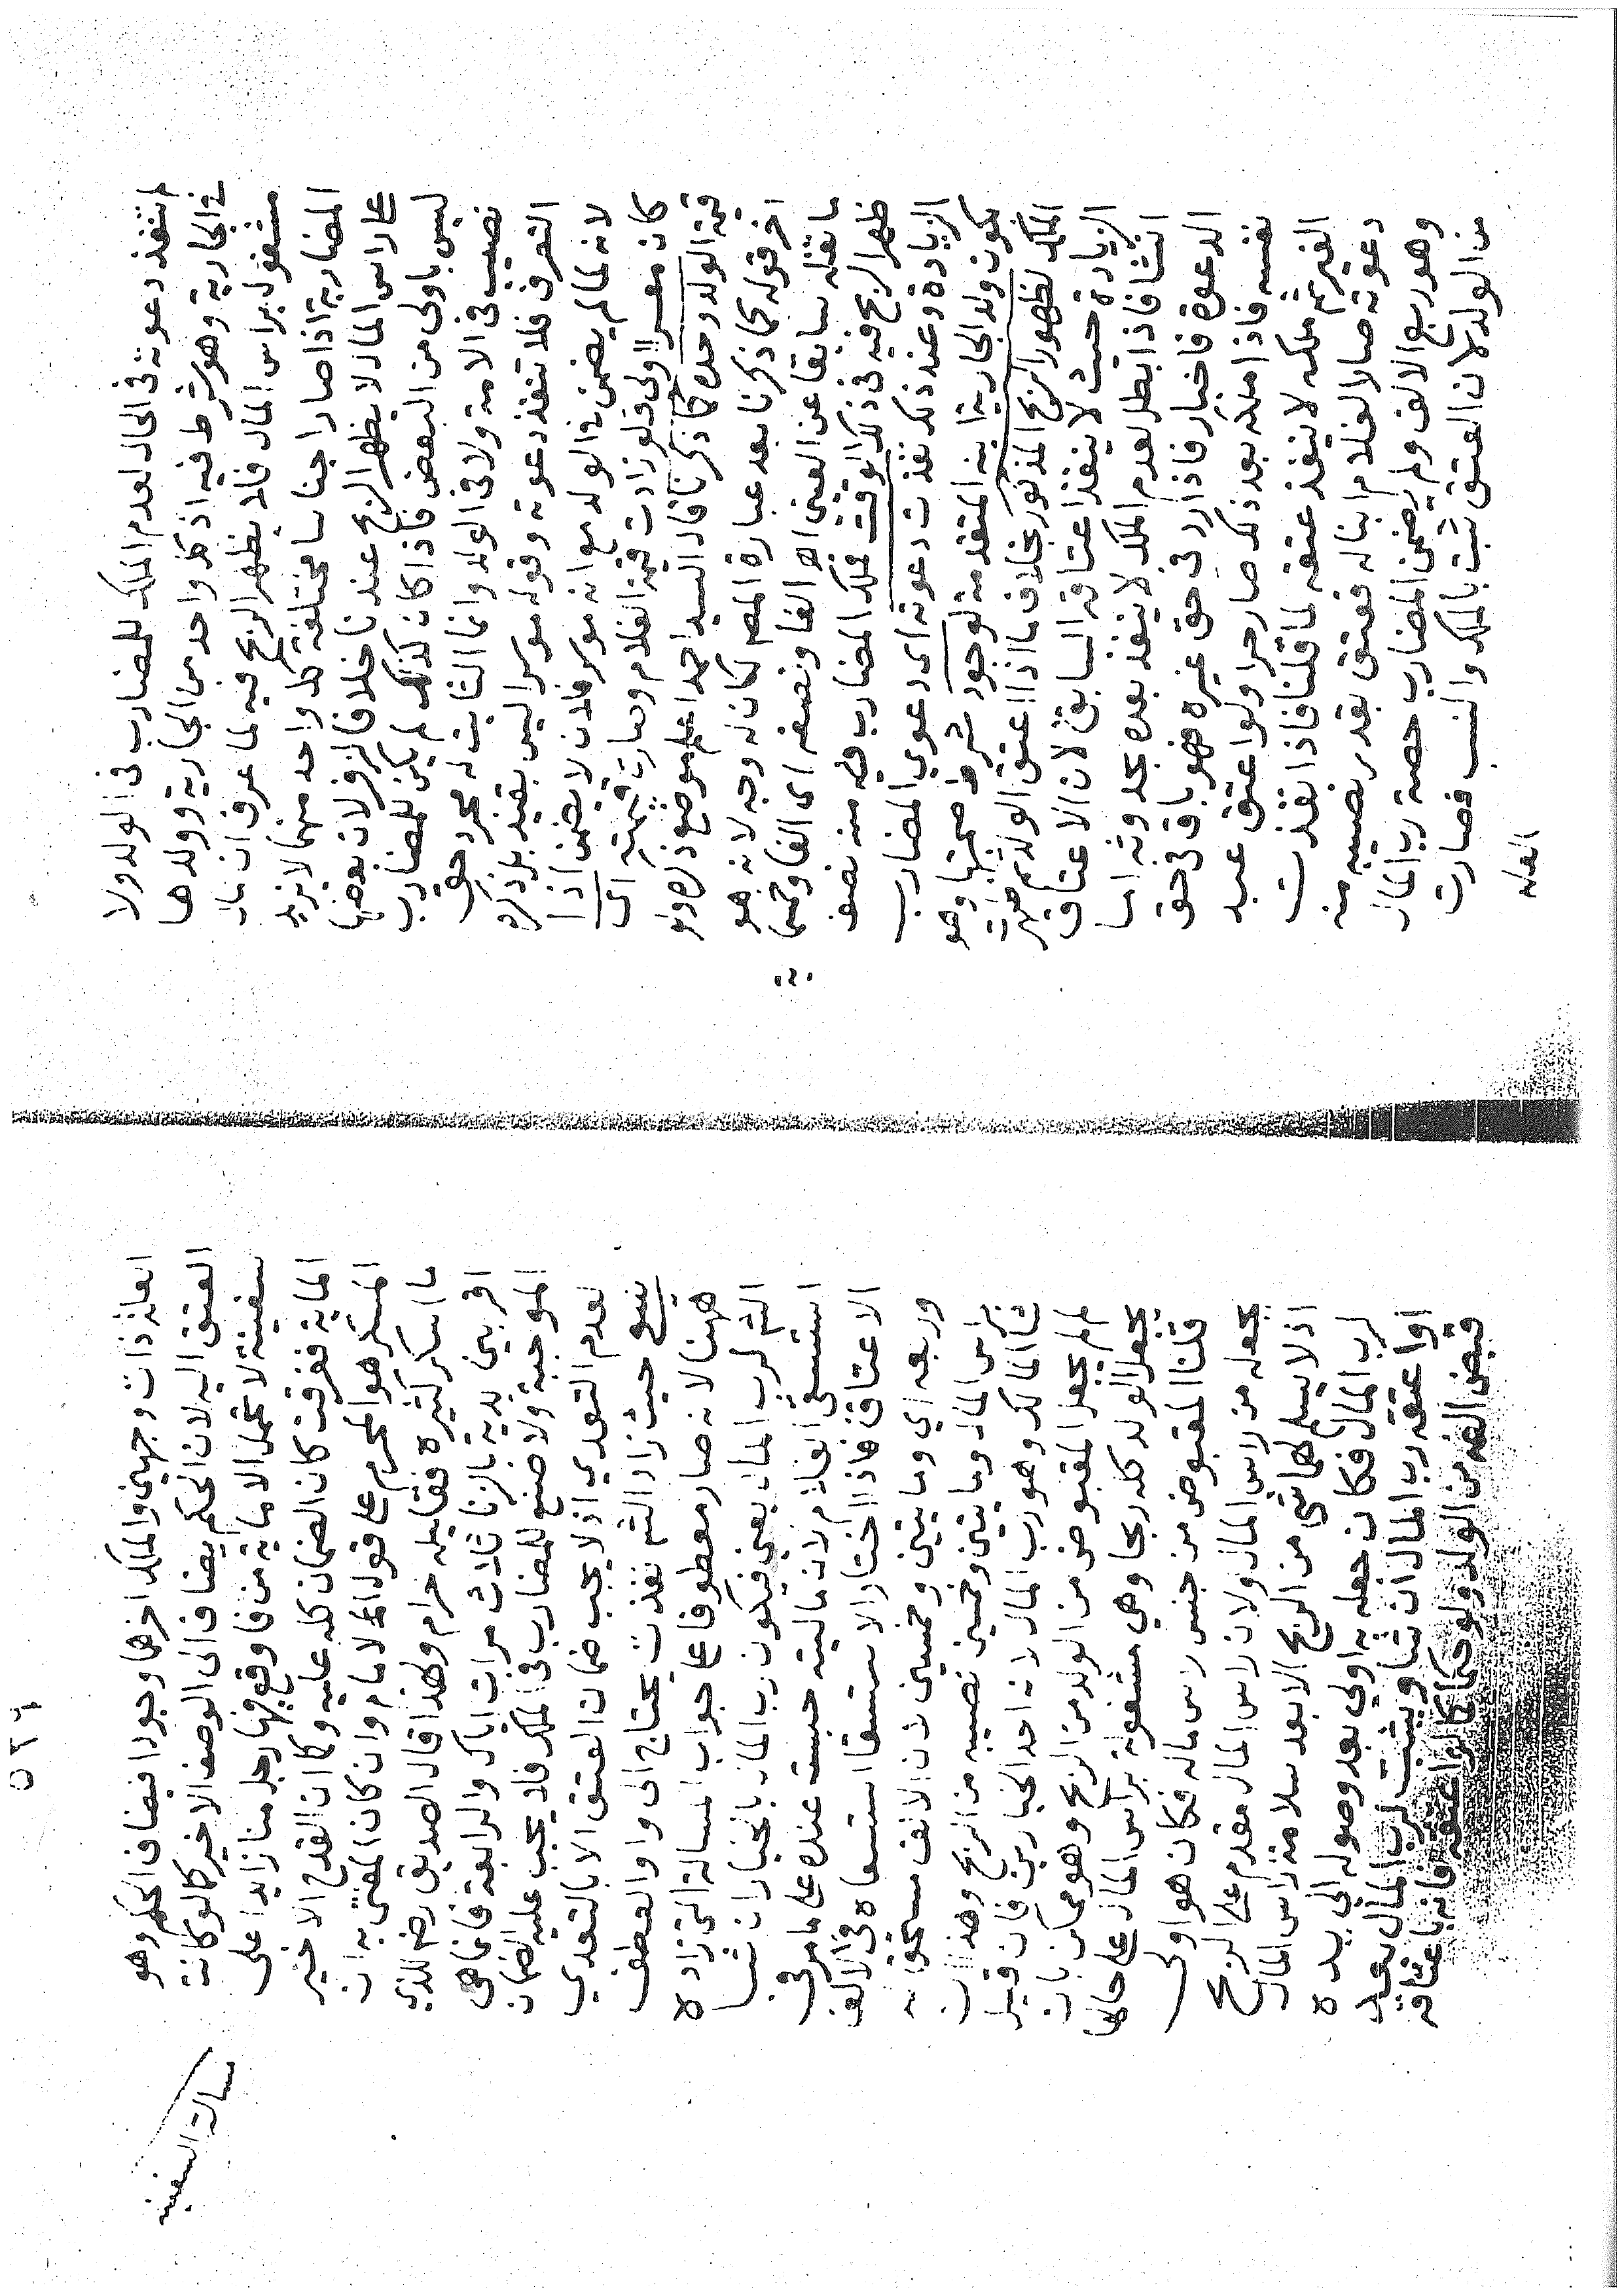 لتنفذ دعوته في الحال لعدم الملك للمضارب في الولد ولا
في الجارية وهو شرط فيه اذ كل واحد من الجارية وولدها
مشغول براس المال فلا يظهر الربح فيه لما عرف ان مال
المضاربة اذا صار اجناسا مختلفة كل واحد منهما لا يزيد
على راس المال لا يظهر الربح عندنا خلافا لزفر لان بعضها
ليس باولى من البعض فاذا كان كذلك لم يكن للمضارب
نصيب في الامة ولا في الولد وانما الثابت له مجرد حق
التصرف فلا تنفذ دعوته وقوله موسرا ليس بقيد بل ذكره
لانه لما لم يضمن في الولد مع انه موسر فلان لا يضمن اذا
كان معسرا اولى فلو زادت قيمة الغلام وصارت قيمته اى
قيمة الولد وحده كما ذكرنا قال السيد احمد موضع ذكره
اخر قوله كما ذكرنا بعد عبارة المص لكان له وجه لانه هو
ما نقله سابقا عن العينى اهـ الفا ونصفه اى الفا وخمسمائة
ظهر الربح فيه في ذلك الوقت فملك المضارب فيه منه نصف
الزيادة وعند ذلك نفذت دعوته اى دعوى المضارب
بكون ولد الجارية ابنه المتقدمة لوجود شرط صحتها وهو
الملك لظهور الربح المذكور بخلاف ما اذا اعتق الولد ثم ظهرت
الزيادة حيث لا ينفذ اعتاقه السابق لان الاعتاق
انشا فاذا بطل لعدم الملك لا ينفذ بعده بحدوثه اما
الدعوة فاخبار فاذا رد في حق غيره فهو باق في حق
نفسه فاذا ملكه بعد ذلك صار حرا ولو اعتق عبد
الغير ثم ملكه لا ينفذ عتقه لما قلنا فاذا نفذت
دعوته صار الغلام ابنا له فعتق بقدر نصيبه منه
وهو ربع الالف ولم يضمن المضارب حصة رب المال
من الولد لان العتق ثبت بالملك والنسب فصارت
العلة
٥٢٦
العلة ذات وجهين والملك اخرهما وجودا فيضاف الحكم وهو
العتق اليه لان الحكم يضاف الى الوصف الاخير كالو كانت
سفينة لا تحمل الا ماية من فاوقع فيها رجل منا زايدا على
الماية فغرقت كان الضمان كله عليه وكان القدح الاخير
المسكر هو المحرم على قول الامام وان كان المفتى به ان
ما اسكر كثيره فقليله حرام ولهذا قال الصديق رضه للذي
اقر بين يديه بالزنا ثلاث مرات اياك والرابعة فانها هى
الموجبة ولا صنع للمضارب في الملك فلا يجب عليه الضمان
لعدم التعدي اذ لا يجب ضمان العتق الا بالتعدي
تنبيه حيث زاد الشم نفذت يحتاج الى واو العطف
ههنا لانه صار معطوفا على جواب المسالة التي زاده
الشم لرب المال يعنى فيكون رب المال بالخيار ان شا
استسعى الغلام لان ماليته حبست عنده على ما مر في
الاعتاق فاذا اختار الاستسقا استسعاه في الالف
وربعه اي ومايتين وخمسين لان الالف مستحق له
براس المال ومايتين وخمسين نصيبه من الربح وهذا ان
شا المالك وهو رب المال لانه احد الخيارين فان قيل
لم لم يجعل المقبوض من الولد من الربح وهو ممكن بان
يجعل الولد كله ربحا وهي مشغولة براس المال على حالها
قلنا المقبوض من جنس راس ماله فكان هو اولى
بجعله من راس المال ولان راس المال مقدم على الربح
اذ لا يسلم لهما شى من الربح الا بعد سلامة راس المال
لرب المال فكان جعله به اولي بعد وصوله الي يده
او اعتقه رب المال ان شا ويثبت لرب المال بعد
قبض الفه من الولد ولو حكما كالو اعتقه فانه باعتاقه
مسالة السفينة